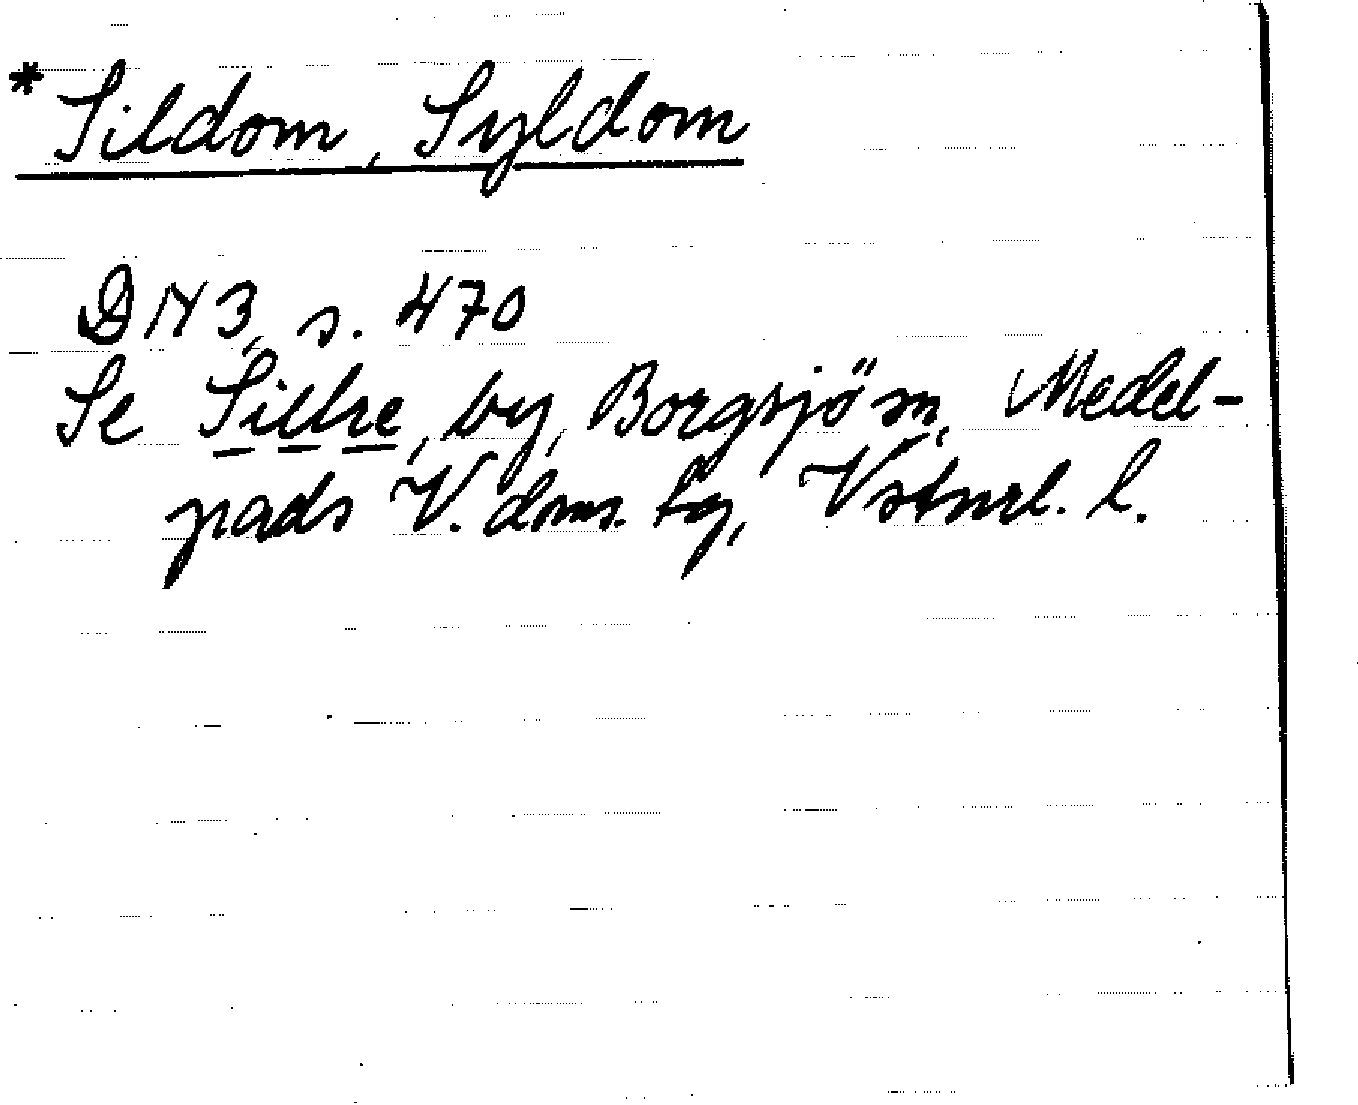 * Sildom, Syldom
DN 3, s. 470
Se Sillre, by, Borgsjö sn, Medel-
pads V. doms. tg, Vstnrl. l.